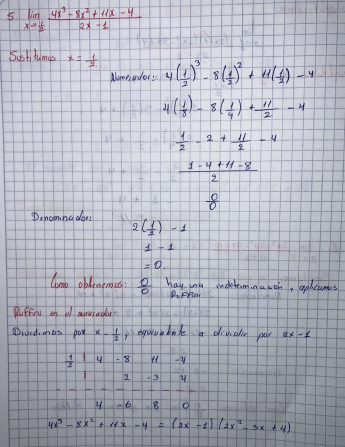 5. lim 4x³ - 8x² + 11x - 4
x→1/2 2x - 1
Sustituimos x = 1/2
Numerador: 4(1/2)³ - 8(1/2)² + 11(1/2) - 4
4(1/8) - 8(1/4) + 11/2 - 4
1/2 - 2 + 11/2 - 4
1 - 4 + 11 - 8
2
0/0
Denominador:
2(1/2) - 1
1 - 1
= 0.
Como obtenemos: 0/0 hay una indeterminación, aplicamos
Ruffini
Ruffini en el numerador:
Dividimos por x - 1/2, equivalente a dividir por 2x - 1
1/2 | 4 -8 11 -4
| 2 -3 4
4 -6 8 0
4x³ - 8x² + 11x - 4 = (2x - 1)(2x² - 3x + 4)